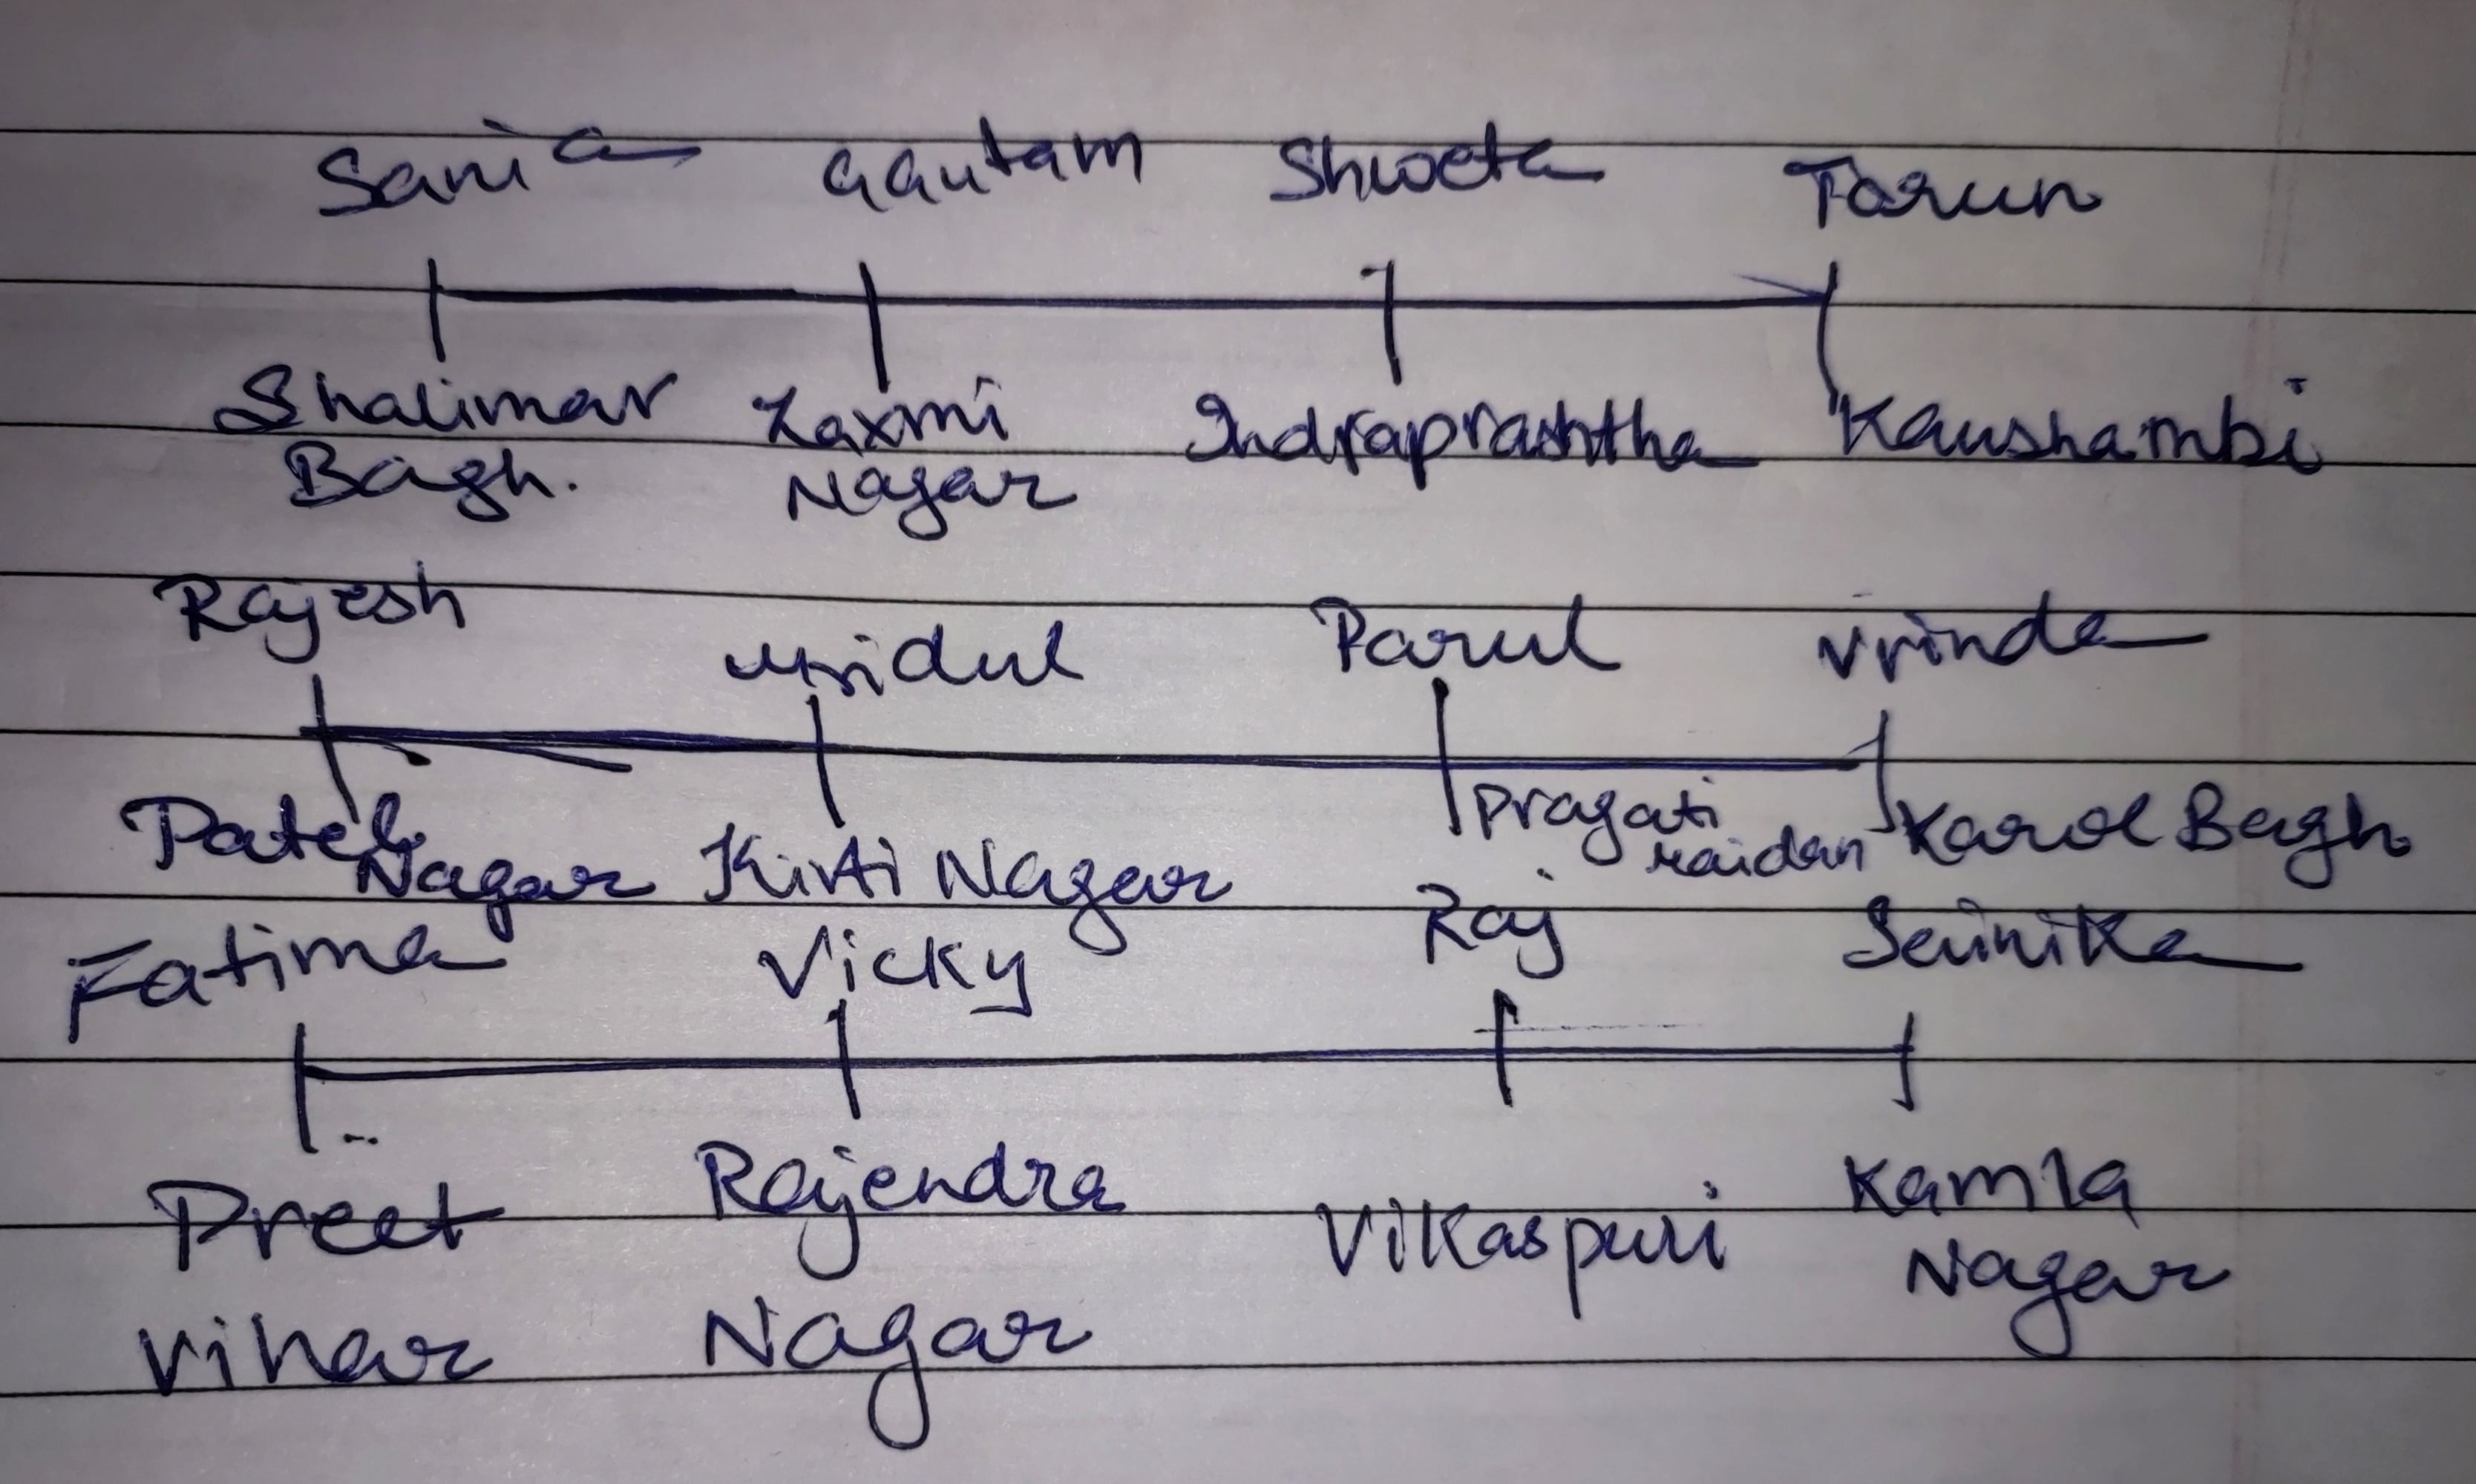 Sania Gautam Shweta Tarun
Shalimar Laxmi Indraprashtha Kaushambi
Bagh. Nagar
Rajesh Mridul Parul Vrinda
Patel Nagar Kirti Nagar Pragati Maidan Karol Bagh
Fatima Vicky Raj Sainika
Preet Rajendra Vikaspuri Kamla
Vihar Nagar Nagar